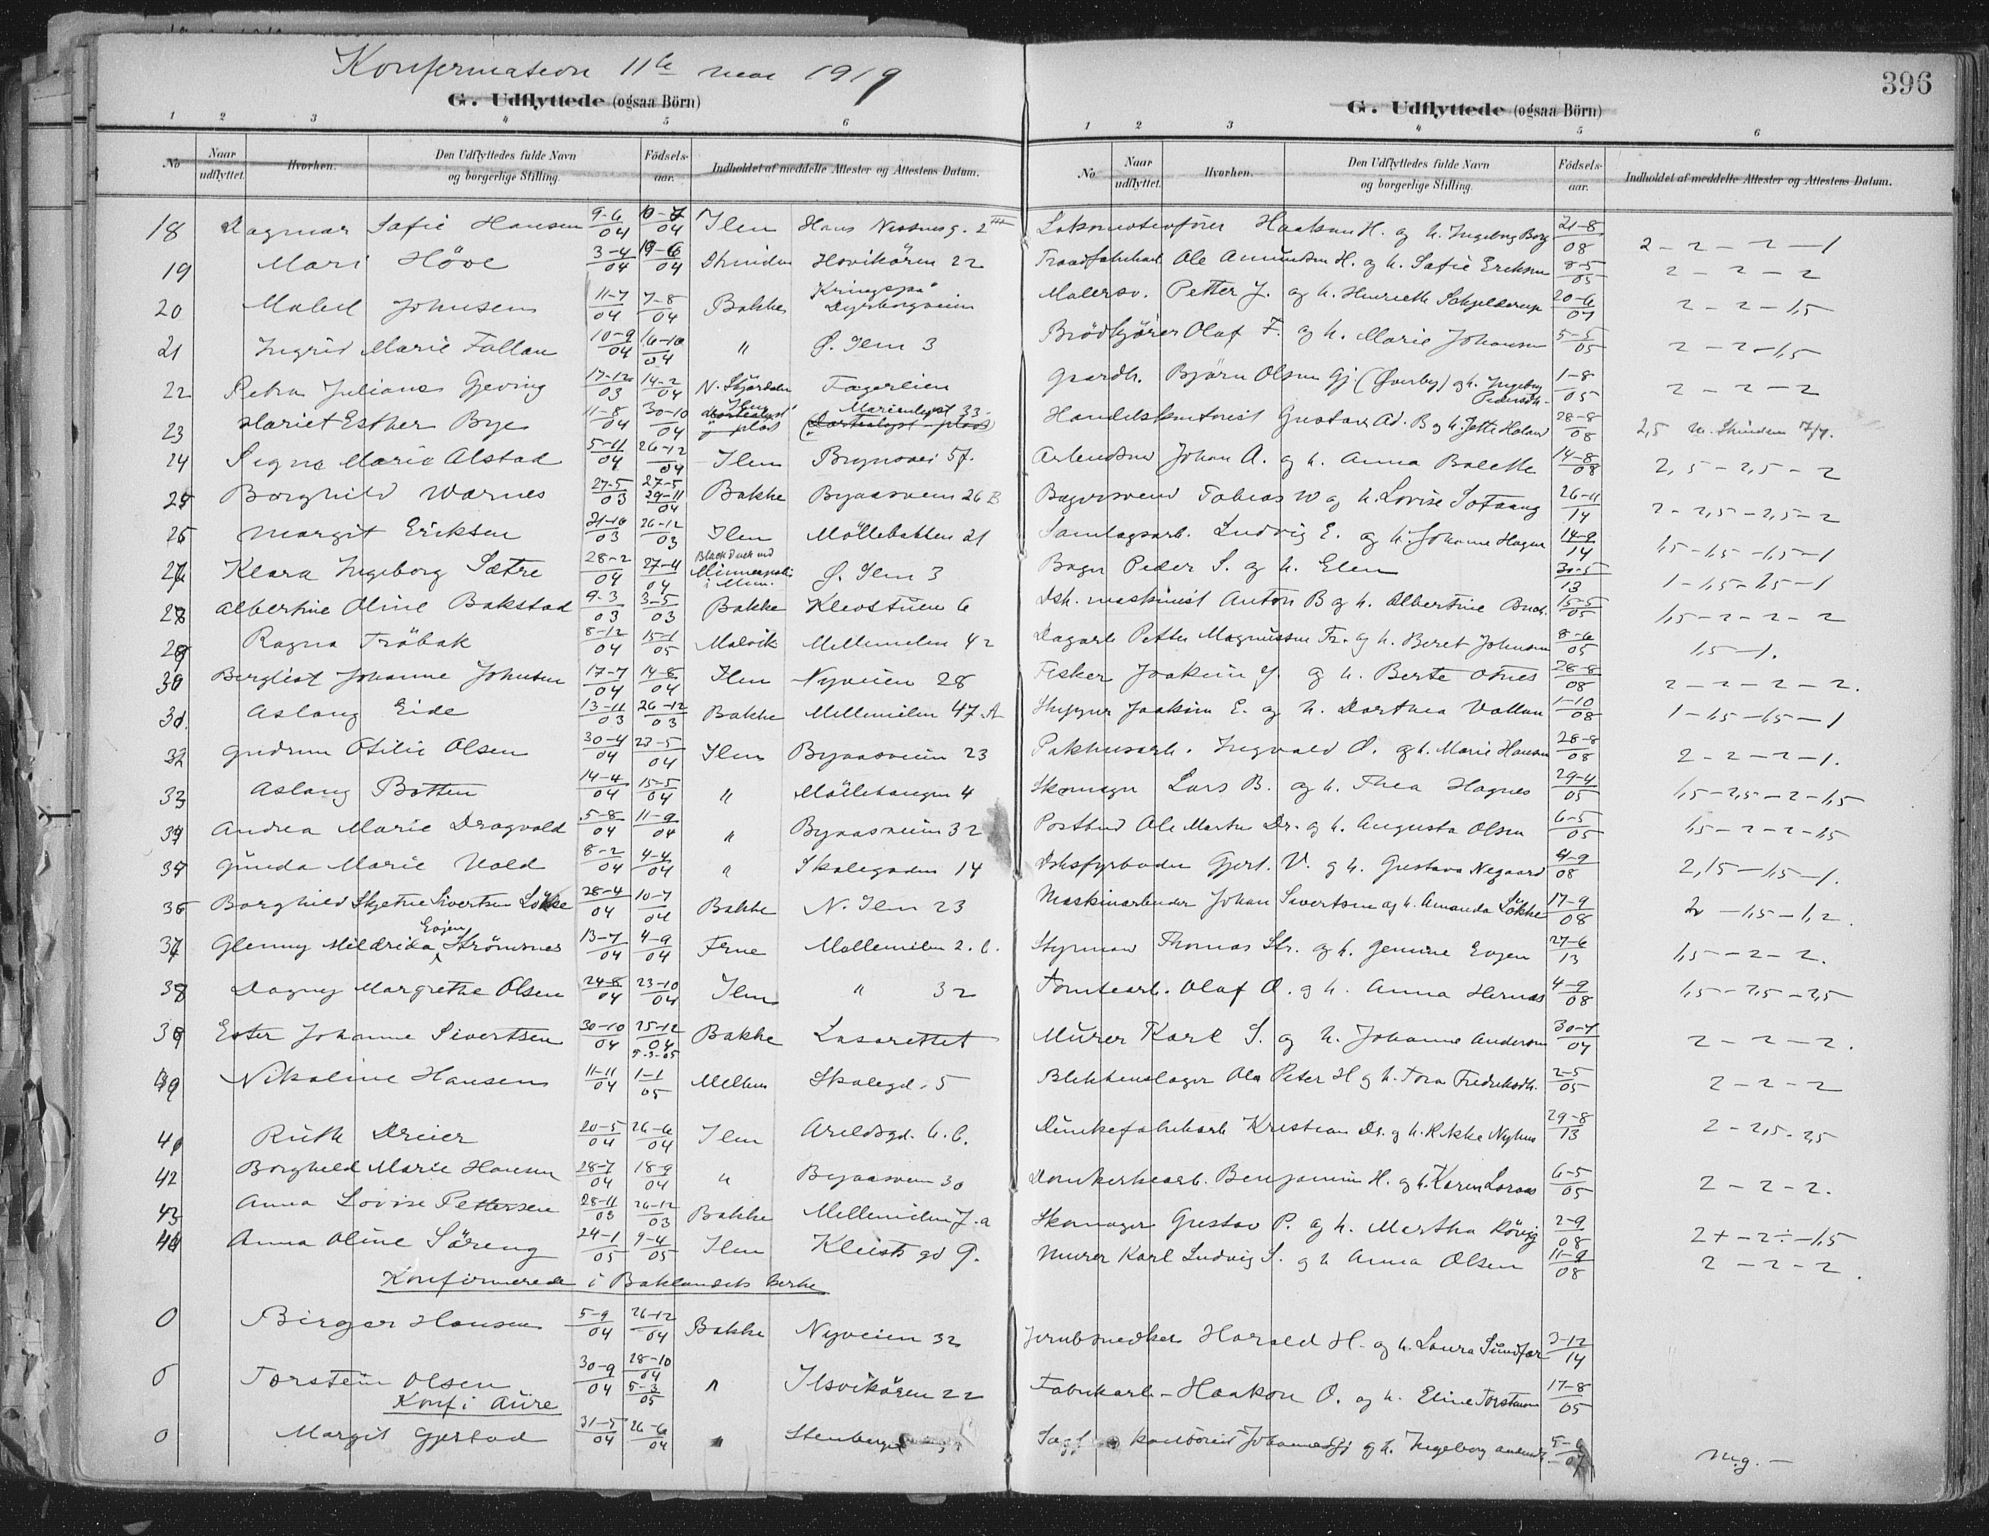 Konfirmation 11te mai 1919
396
G. Udflyttede (ogsaa Börn)
G. Udflyttede (ogsaa Börn)
1 2 3 4 5 6
1 2 3 4 5 6
No Naar udflyttet. Hvorhen. Den Udflyttedes fulde Navn og borgerlige Stilling. Födsels-aar. Indholdet af meddelte Attester og Attestens Datum.
No Naar udflyttet. Hvorhen. Den Udflyttedes fulde Navn og borgerlige Stilling. Födsels-aar. Indholdet af meddelte Attester og Attestens Datum.
18 Dagmar Safie Hansen 9-6/04 /04 Ilen Hans Nissensg. 2 Lokomotivförer Haakon H. og h. Ingeborg Borg 21-8/08 2-2-2-1
19 Mari Höve 3-4/04 /04 Hovikören 22 Ole Amundsen H. og h. Safie Eriksen 8-5/05 2-2-2
20 Mabel Johnsen 11-7/04 7-8/04 Bakke Kringsjaa Dyrborgveien Malersv. Petter J. og h. Henriette Schjelderup 20-6/07 2-2-1,5
21 Ingrid Marie Fallan 10-9/04 16-10/04 " Ö. Ilen 3 Brödkjörer Olaf F. og h. Marie Johansen 5-5/05 2-2-1,5
22 Petra Juliane Gjeving 17-12/03 14-2/04 N. Stjördalen Fagerlien Gaardbr. Björn Olsen Gj (Överby) og h. Ingeborg Pedersdtr. 1-8/05 2-2-2
23 Harriet Esther Bye 11-8/04 30-10/04 Ilen Marienlyst 33 Handelskontorist Gustav Ad. B og h. Jette Holand 28-8/08 2,5
24 Signe Marie Alstad 5-11/04 26-12/04 Ilen 57. Johan A. og h. Anna Bolette 14-8/08 2,5-2,5-2
25 Borghild Warnes 27-5/03 27-5 29-11/04 Bakke Byaasveien 26 B Bagersvend Tobias W og h. Lovise Sotaang 26-11/14 2-2,5-2,5-2
26 Margit Eriksen 21-10/03 26-12/03 Ilen Möllebakken 21 Samlagsarb. Ludvig E. og h. Johanne Hagen 14-9/14 1,5-1,5-1,5-1
27 Klara Ingeborg Sætre 28-2/04 27-4/04 Minneapolis i Minn. Ö. Ilen 3 Bager Peder S. og h. Elen 30-5/13 1-1,5-1,5-1
28 Albertine Oline Bakstad 9-3/03 3-5/03 Bakke Klevstuen 6 Dsk. maskinist Anton B og h. Albertine 15-5/05 1,5-2-2-2
29 Ragna Tröbak 8-12/04 15-1/05 Malvik Mellemilen 42 Dagarb Petter Magnussen Tr. og h. Beret Johnsen 8-6/05 1,5-1.
30 Bergliot Johanne Johnsen 17-7/04 14-8/04 Ilen Nyveien 28 Fisker Joakim J. og h. Berte Otnes 28-8/08 2-2-2-2.
31. Aslaug Eide 13-11/03 26-12/03 Bakke Mellemilen 47.A Skipper Joakim E. og h. Dorthea Vollan 1-10/08 1-1,5-1,5-1
32 Gudrun Otilie Olsen 30-4/04 23-5/04 Ilen Byaasveien 23 Pakhusarb. Ingvald O. og h. Marie Hansen 28-8/08 2-2-2-1.
33 Aslaug Botten 14-4/04 15-5/04 " Möllebangen 4 Skomager Lars B. og h. Thea Hagnes 29-4/05 1,5-2,5-2-1,5
34 Andrea Marie Dragvold 5-8/04 11-9/04 " Byaasveien 32 Postbud Ole Martin Dr. og h. Augusta Olsen 6-5/05 1,5-2-2-1,5
35 Gunda Marie Vold 8-2/04 4-4/04 " Skolegaden 14 Dskfyrböder Gjert. V. og h. Gustava Negaard /08 2,15-1,5-1.
36 Borghild Skjetne Sivertsen Lökke 28-4/04 10-7/04 Bakke N. Ilen 23 Maskinarbeider Johan Sivertsen og h. Amanda Lökke 17-9/08 2-1,5-1,2.
37 Glenny Mildrida Evjen Strömsnes 13-7/04 4-9/04 Erne Mellemilen 2.b. Styrmand Thomas Str. og h. Jenine Evjen 27-6/13 1,5-2-2.
38 Dagny Margrethe Olsen 24-8/04 23-10/04 Ilen " 32 Tomtearb. Olaf O. og h. Anna Hernæs 4-9/08 1,5-2,5-2,5
39 Ester Johanne Sivertsen 30-10/04 25-12/04 5-3-05 Bakke Lasarettet Murer Karl S. og h. Johanne Andersen 30-4/04 2-2-2.
40 Nikoline Hansen 11-11/04 1-1/05 Melhus Skolegd. 5 Blikkenslager Ola Peter H og h. Tora Fredriksdtr. 2-5/05 2-2-2
41 Ruth Dreier 20-5/04 26-6/04 Ilen Arildsgd. 6.b. Kristian Dr. og h. Rikke Nyhus 29-8/13 2-2,5-2,5
42 Borghild Marie Hansen 28-7/04 18-9/04 " Byaasveien 30 Domkirkearb. Benjamin H. og h. Karen Loraas 6-5/05 2-2-2.
43 Anna Lovise Pettersen 28-11/03 26-12/03 Bakke Mellemilen 7.a Skomager Gustav P. og h. Martha Rövig 2-9/08 2+-2÷-1,5
44 Anna Oline Söreng 24-1/05 9-4/05 Ilen Kleists gd 9. Murer Karl Ludvig S. og h Anna Olsen 11-9/08 2-2-2.
Konfirmerede i Baklandets kirke
0 Birger Hansen 5-9/04 26-12/04 Bakke Nyveien 32 Jernbsnedker Harald H. og h. Laura Sundfær 3-12/14
0 Torstein Olsen 30-9/04 28-10/04 5-3/05 " Ilsvikören 22 Fabrikarb- Haakon O. og h. Eline Torstensen 17-8/05
Konf i Aure
0 Margit Gjerstad 31-5/04 26-6/04 " Stenberget kontorist Johannes Gj og h. Ingeborg m.g.-